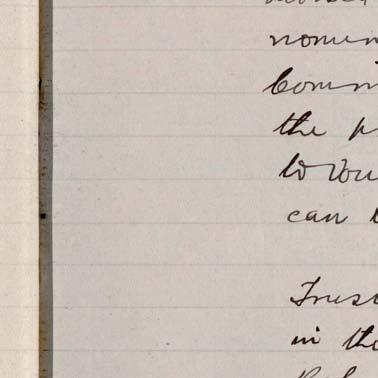 nomin
Comm
the p
to You
can
Trus
in the